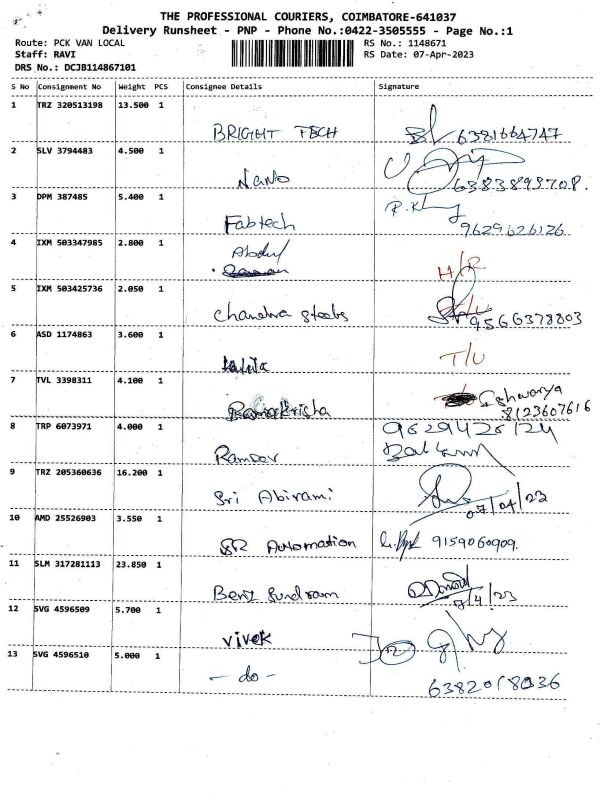 THE PROFESSIONAL COURIERS, COIMBATORE-641037
Delivery Runsheet - PNP - Phone No.:0422-3505555 - Page No.:1
Route: PCK VAN LOCAL
RS No.: 1148671
Staff: RAVI
RS Date: 07-Apr-2023
DRS No.: DCJB114867101
S No Consignment No Weight PCS Consignee Details Signature
1 TRZ 320513198 13.500 1
BRIGHT TECH 6381664747
2 SLV 3794483 4.500 1
Nano 6383893708.
3 DPM 387485 5.400 1
Fabtech 9629626126
4 IXM 503347985 2.800 1
Abdul
H/R
5 IXM 503425736 2.050 1
Chandra steels 9566378803
6 ASD 1174863 3.600 1
Lalita T/U
7 TVL 3398311 4.100 1
Ramakrisha Eshwarya
8123607616
8 TRP 6073971 4.000 1
9629426124
Ramdev
9 TRZ 205360636 16.200 1
Sri Abirami 07/04/23
10 AMD 25526903 3.550 1
SR Automation 9159060909.
11 SLM 317281113 23.850 1
Bent Sundram 7/4/23
12 SVG 4596509 5.700 1
vivek
13 SVG 4596510 5.000 1
- do - 6382018036